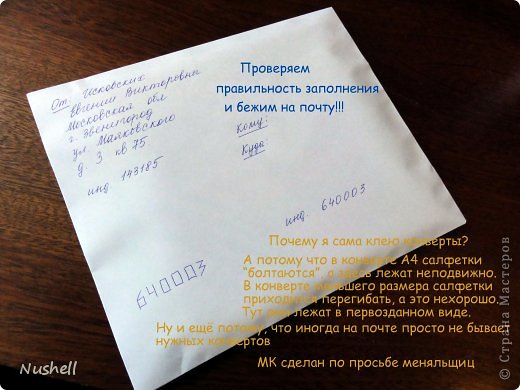 Проверяем
правильность заполнения
и бежим на почту!!!
От Исковских
Евгении Викторовны
Московская обл
г. Звенигород
ул. Маяковского
д. 3 кв 75
инд. 143185
Кому:
Куда:
инд. 640003
640003
Почему я сама клею конверты?
А потому что в конверте А4 салфетки
"болтаются", а здесь лежат неподвижно.
В конверте меньшего размера салфетки
приходится перегибать, а это нехорошо.
Тут они лежат в первозданном виде.
Ну и ещё потому, что иногда на почте просто не бывает
нужных конвертов
МК сделан по просьбе меняльщиц
Nushell
© Страна Мастеров